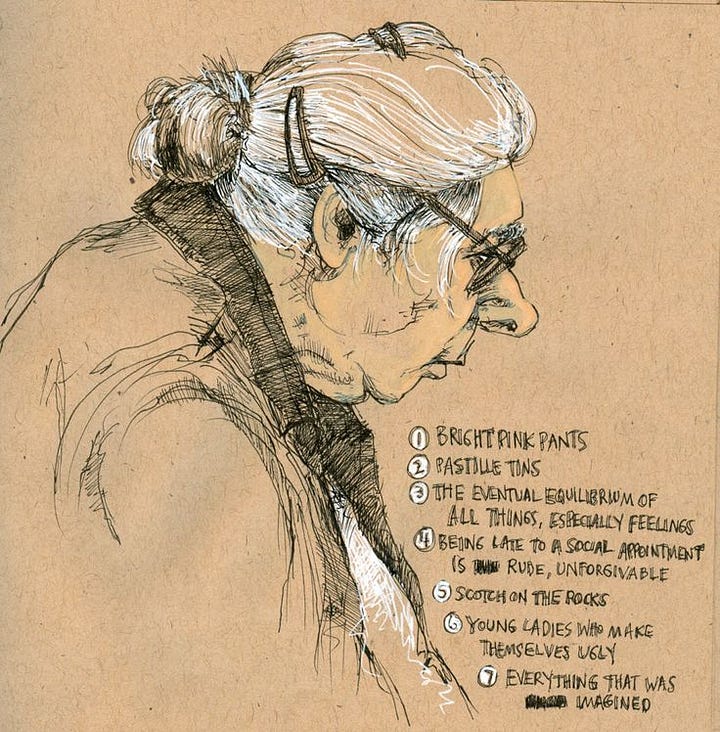 1 BRIGHT PINK PANTS
2 PASTILLE TINS
3 THE EVENTUAL EQUILIBRIUM OF
ALL THINGS, ESPECIALLY FEELINGS
4 BEING LATE TO A SOCIAL APPOINTMENT
IS RUDE, UNFORGIVABLE
5 SCOTCH ON THE ROCKS
6 YOUNG LADIES WHO MAKE
THEMSELVES UGLY
7 EVERYTHING THAT WAS
IMAGINED